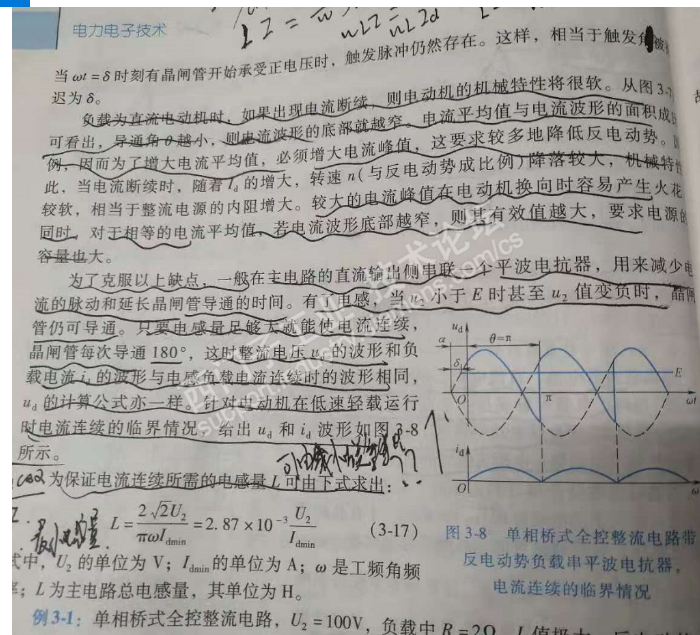 电力电子技术
当 ωt = δ 时刻有晶闸管开始承受正电压时，触发脉冲仍然存在。这样，相当于触发角被
迟为 δ。
负载为直流电动机时，如果出现电流断续，则电动机的机械特性将很软。从图 3-7
可看出，导通角 θ 越小，则电流波形的底部就越窄。电流平均值与电流波形的面积成
例，因而为了增大电流平均值，必须增大电流峰值，这要求较多地降低反电动势。
此，当电流断续时，随着 Id 的增大，转速 n（与反电动势成比例）降落较大，机械特性
较软，相当于整流电源的内阻增大。较大的电流峰值在电动机换向时容易产生火花
同时，对于相等的电流平均值，若电流波形底部越窄，则其有效值越大，要求电源的
容量也大。
为了克服以上缺点，一般在主电路的直流输出侧串联一个平波电抗器，用来减少电
流的脉动和延长晶闸管导通的时间。有了电感，当 u2 小于 E 时甚至 u2 值变负时，晶闸
管仍可导通。只要电感量足够大就能使电流连续，
晶闸管每次导通 180°，这时整流电压 ud 的波形和负
载电流 id 的波形与电感负载电流连续时的波形相同，
ud 的计算公式亦一样。针对电动机在低速轻载运行
时电流连续的临界情况，给出 ud 和 id 波形如图 3-8
所示。
为保证电流连续所需的电感量 L 可由下式求出：
L = 2√2U2 / πωIdmin = 2.87 × 10⁻³ U2 / Idmin (3-17)
式中，U2 的单位为 V；Idmin 的单位为 A；ω 是工频角频
率；L 为主电路总电感量，其单位为 H。
ud
α
θ=π
δ
E
O
π
ωt
id
O
ω
图 3-8 单相桥式全控整流电路带
反电动势负载串平波电抗器，
电流连续的临界情况
例 3-1：单相桥式全控整流电路，U2 = 100V，负载中 R = 2Ω，L 值极大，反电动势